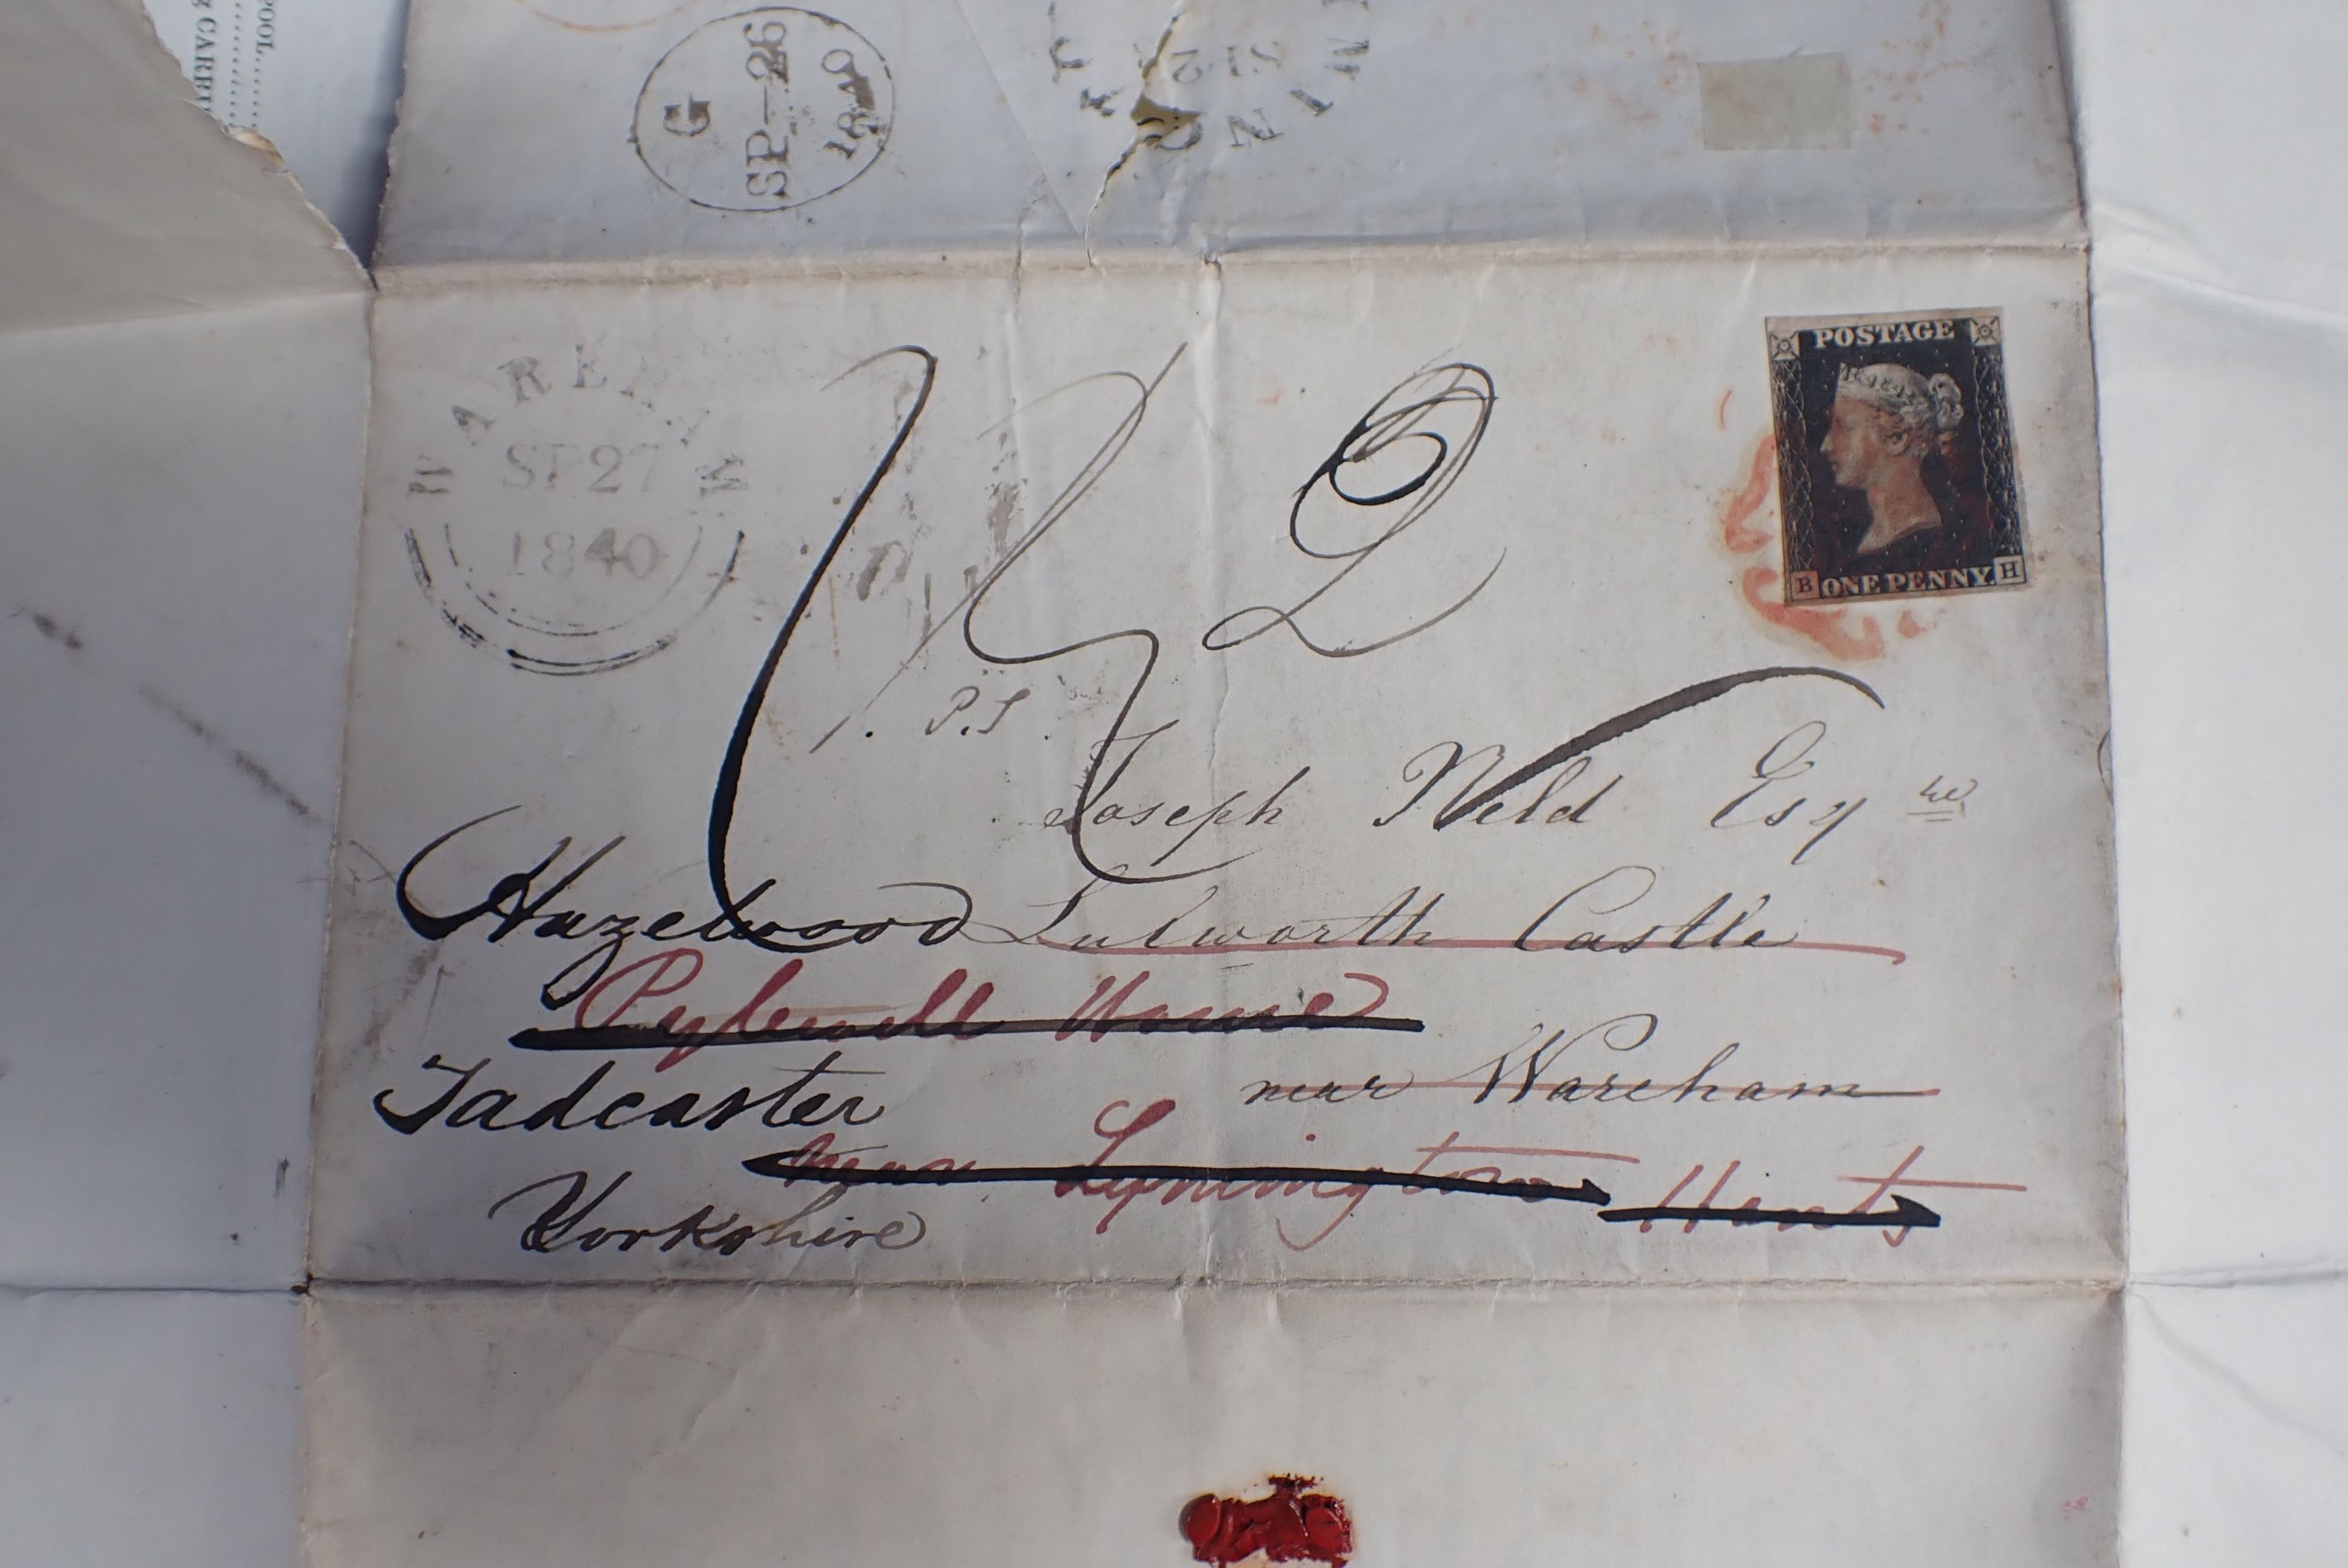 POOL
CARRI
G
SP-26
1840
WAREHAM
SP27
1840
POSTAGE
B ONE PENNY. H
2
P.S
Joseph Weld Esqre
Hazelwood
Lulworth Castle
Pylewell House
near Wareham
Tadcaster
near Lymington Hants
Yorkshire